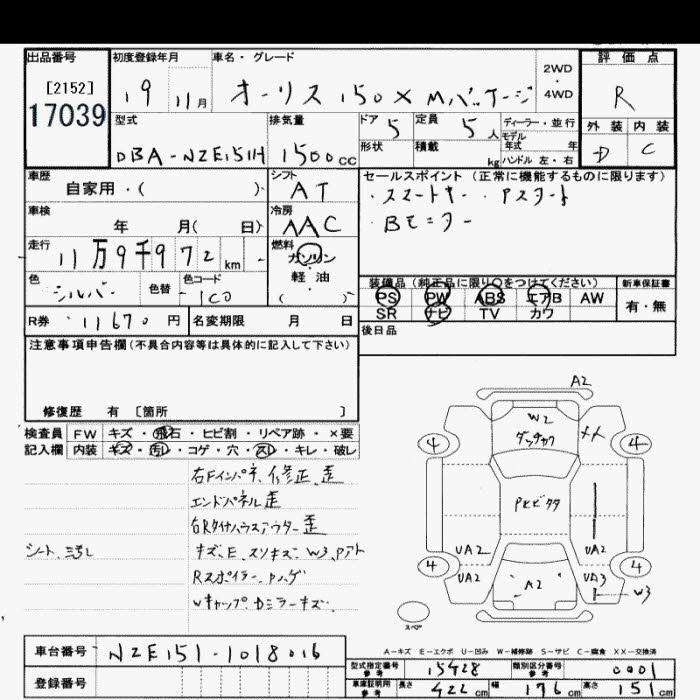 出品番号 初度登録年月 車名・グレード 2WD・4WD 評価点
[2152]
17039
19 11月 オーリス 150X Mパッケージ R
型式 排気量 ドア 定員 ディーラー・並行 外装 内装
DBA-NZE151H 1500cc 5 5人 モデル年式 年 D C
形状 積載 kg ハンドル 左・右
車歴 シフト セールスポイント (正常に機能するものに限ります)
自家用・( ) AT ・スマートキー ・Pスタート
車検 冷房 ・Bモニター
年 月( 日) AAC
走行 燃料
11万9千972km ガソリン
色 色替 色コード 軽・油
シルバー 1C0 ( )
装備品 (純正品に限り○をつけてください) 新車保証書
PS PW ABS エアB AW 有・無
SR ナビ TV カワ
R券 11670円 名変期限 月 日
後日品
注意事項申告欄(不具合内容等は具体的に記入して下さい)
修復歴 有 [箇所 ]
検査員 FW キズ・飛石・ヒビ割・リペア跡・×要
記入欄 内装 キズ・汚レ・コゲ・穴・スレ・キレ・破レ
右Fインパネ 修正、歪
エンドパネル歪
右Rタイヤハウスアウター歪
シート キズ、E、スリキズ、W3、Pアト
Rスポイラー ハゲ
Wキャップ、Dミラーキズ
A2
W2
4 4
UA2 UA2
4 4
UA2 A2 UA3
W3
スペア
A-キズ E-エクボ U-凹み W-補修跡 S-サビ C-腐食 XX-交換済
車台番号 NZE151-1018016
型式指定番号 参考 15428 類別区分番号 参考 0001
登録番号
車庫証明用 参考 長さ 422cm 幅 176cm 高さ 151cm